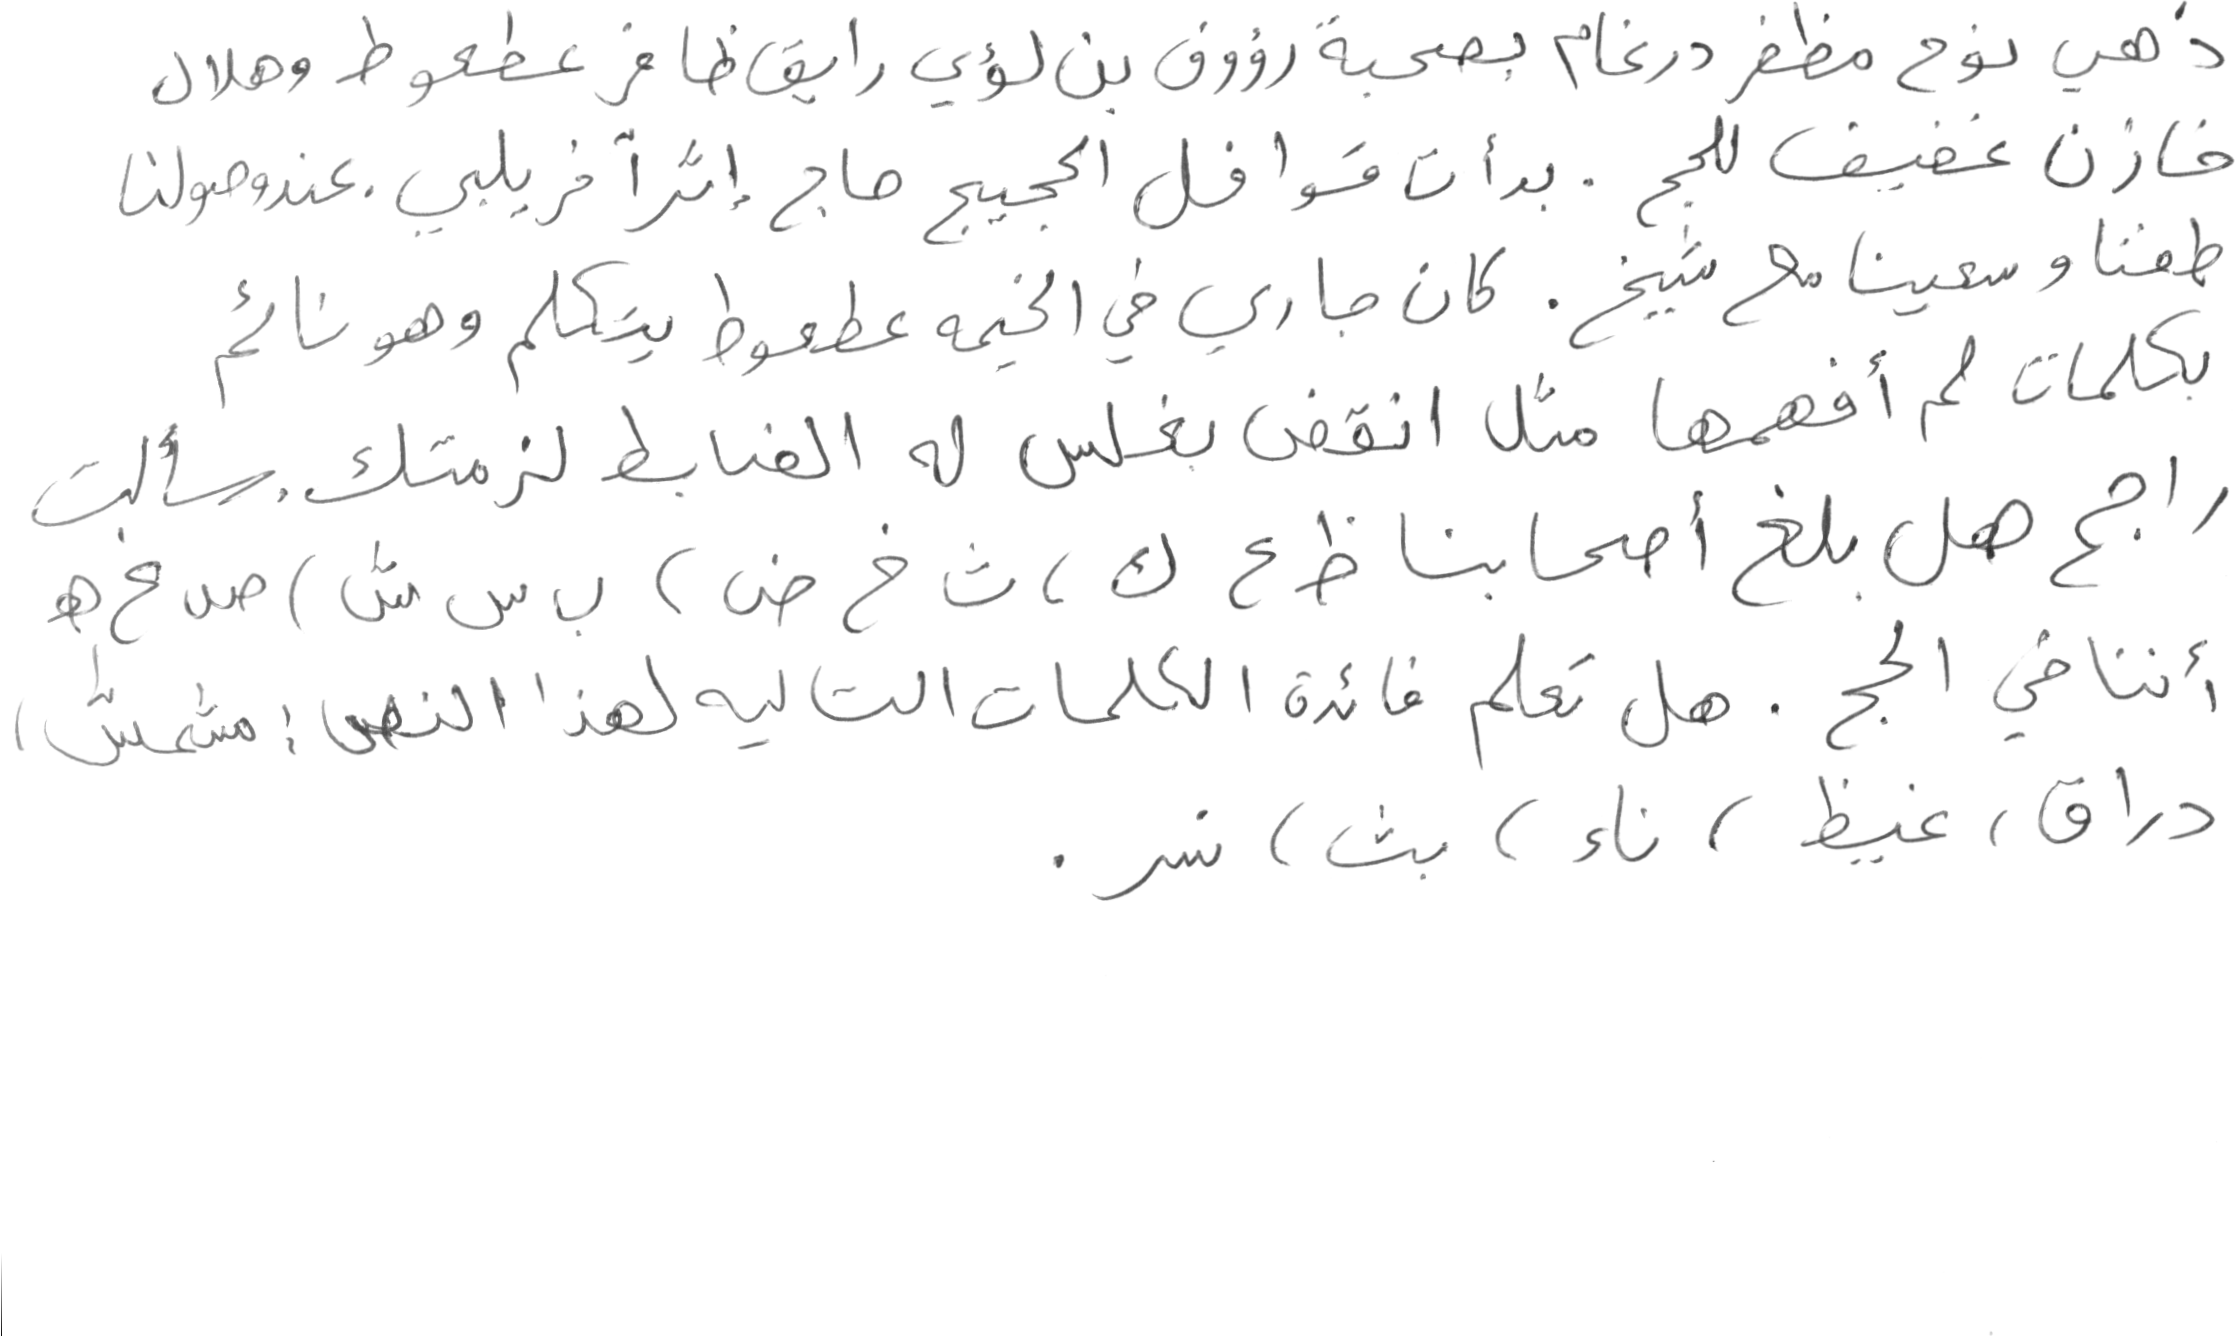 ذهب نوح مظفر درغام بصحبة رؤوف بن لؤي رايق ظافر عطعوط وهلال
خازن غضيف للحج . بدأت قوافل الحجيج حاج إثر آخر يلبي . عند وصولنا
طفنا وسعينا مع شيخ . كان جاري في الخيمه عطعوط يتكلم وهو نائم
بكلمات لم أفهمها مثل انقض بغلس له الضابط لزمتك . سألت
راجح هل بلغ أصحابنا ظ ع ك ، ث خ ض ، ب س ش ، صد خ ه
أننا في الحج . هل تعلم فائدة الكلمات التاليه لهذا النص : مشمش ،
دراق ، غيظ ، ناء ، بث ، نسر .